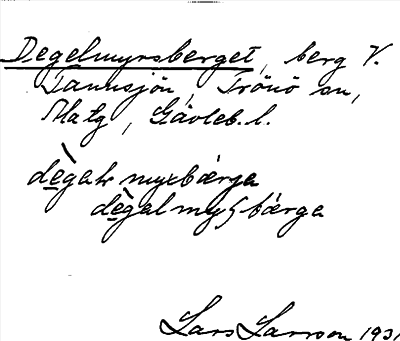 Degelmyrsberget, berg V.
Tannsjön, Trönö sn,
Matg, Gävleb. l.
dègaḷ myxbǽrga
dègal myʂbǽrga
Lars Larsson 1931